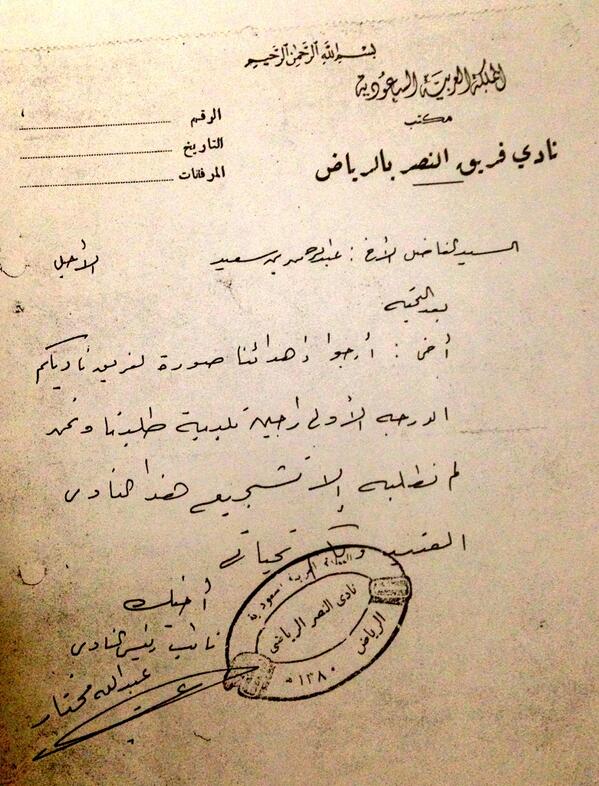 بسم الله الرحمن الرحيم
المملكة العربية السعودية
مكتب
نادي فريق النصر بالرياض
الرقم
التاريخ
المرفقات
السيد الفاضل الأخ : عبدالرحمن بن سعيد الأجل
بعد التحية
أخي : أرجوا إهدائنا صورة لفريق ناديكم
الدرجه الأولى راجين تلبية طلبنا ونحن
لم نطلبه إلا تشجيع هذا النادي
وتحياتي
أخيك
نائب رئيس النادي
عبدالله مختار
المملكة العربية السعودية
نادي النصر الرياضي
الرياض
١٣٨٠هـ